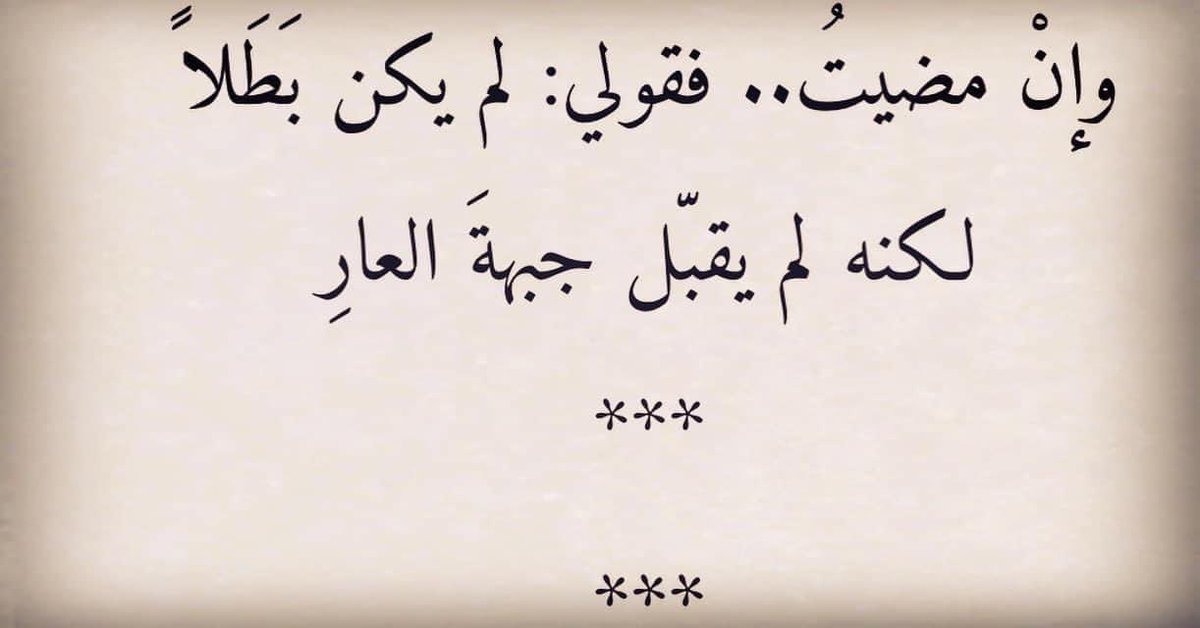 وإنْ مضيتُ.. فقولي: لم يكن بَطَلاً
لكنه لم يقبّل جبهةَ العارِ
***
***